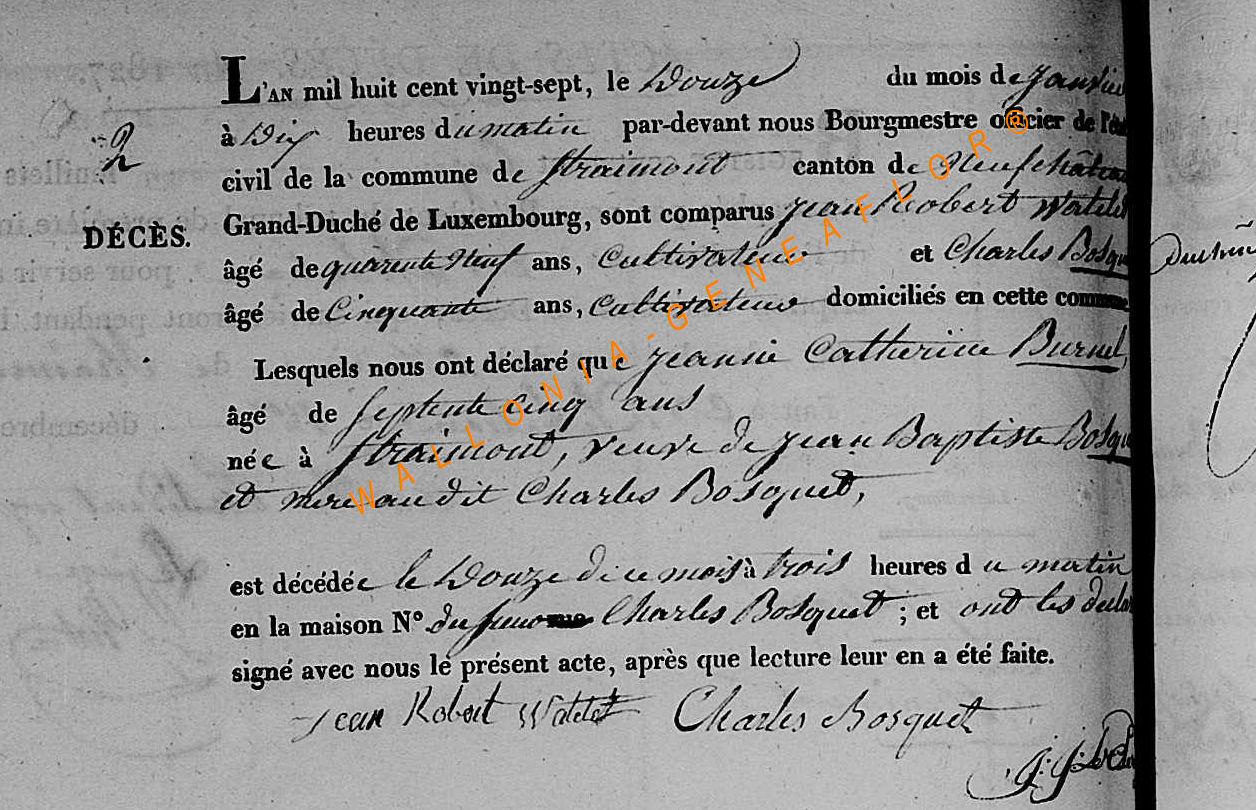 L'AN mil huit cent vingt-sept, le Douze du mois de Janvie
à Dix heures du matin par-devant nous Bourgmestre officier de l'é
2
civil de la commune de Straimont canton de Neufchâteau
DÉCÈS.
Grand-Duché de Luxembourg, sont comparus Jean Robert Watelet
âgé de quarente Neuf ans, Cultivateur et Charles Bosqu
âgé de Cinquante ans, Cultivateur domiciliés en cette commune
Lesquels nous ont déclaré que Jeanne Catherine Burnel,
âgé de Septente cinq ans
née à Straimont, veuve de Jean Baptiste Bosqu
et mere audit Charles Bosquet,
est décédée le Douze de ce mois à trois heures du matin
en la maison N° du Charles Bosquet ; et ont les décla
signé avec nous le présent acte, après que lecture leur en a été faite.
Jean Robert Watelet Charles Bosquet
WALLONIA-GENEAFLOR@